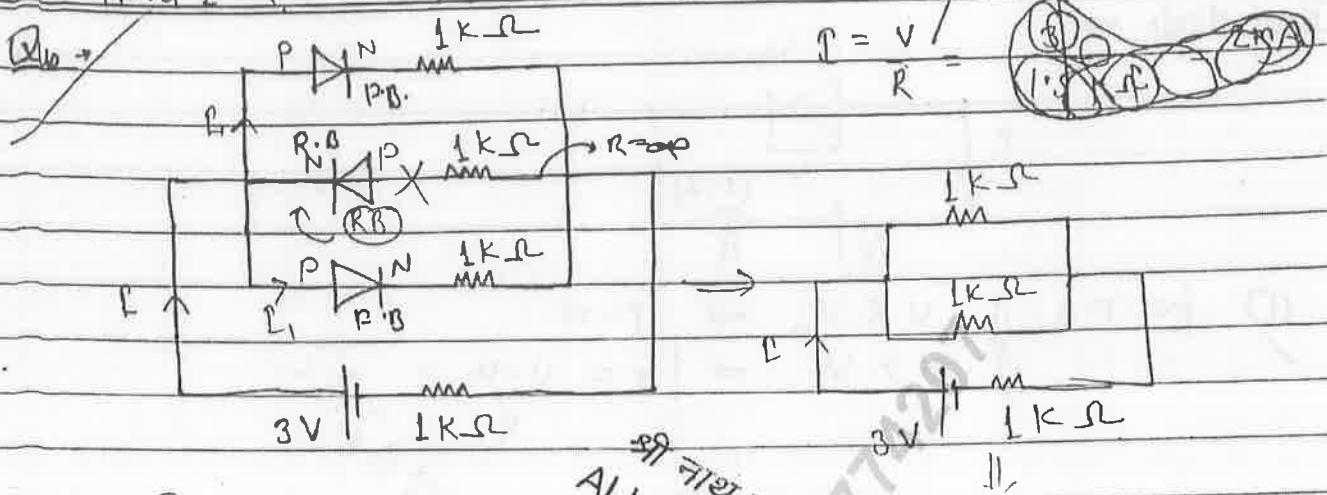 Q16 →
P N 1KΩ
P.B.
I = V/R =
3
1.5
2mA
I₁
R.B
N P 1KΩ → R=∞
RB
P N 1KΩ
P.B
I
I₁
3V 1KΩ
⇒
1KΩ
1KΩ
I
3V 1KΩ
श्री नाथ